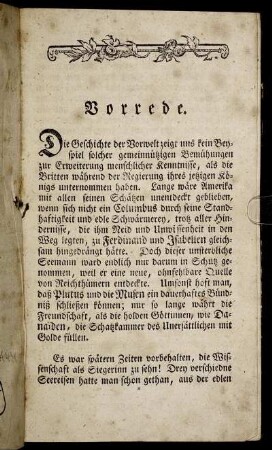 Vorrede.
Die Geschichte der Vorwelt zeigt uns kein Bey-
spiel solcher gemeinnützigen Bemühungen
zur Erweiterung menschlicher Kenntnisse, als die
Britten während der Regierung ihres jetzigen Kö-
nigs unternommen haben. Lange wäre Amerika
mit allen seinen Schätzen unentdeckt geblieben,
wenn sich nicht ein Columbus durch seine Stand-
haftigkeit und edle Schwärmerey, trotz aller Hin-
dernisse, die ihm Neid und Unwissenheit in den
Weg legten, zu Ferdinand und Isabellen gleich-
sam hingedrängt hätte. Doch dieser unsterbliche
Seemann ward endlich nur darum in Schutz ge-
nommen, weil er eine neue, ohnfehlbare Quelle
von Reichthümern entdeckte. Umsonst hoft man,
daß Plutus und die Musen ein dauerhaftes Bünd-
niß schließen können; nur so lange währt die
Freundschaft, als die holden Göttinnen, wie Da-
naiden, die Schatzkammer des Unersättlichen mit
Golde füllen.
Es war spätern Zeiten vorbehalten, die Wis-
senschaft als Siegerinn zu sehn! Drey verschiedne
Seereisen hatte man schon gethan, aus der edlen